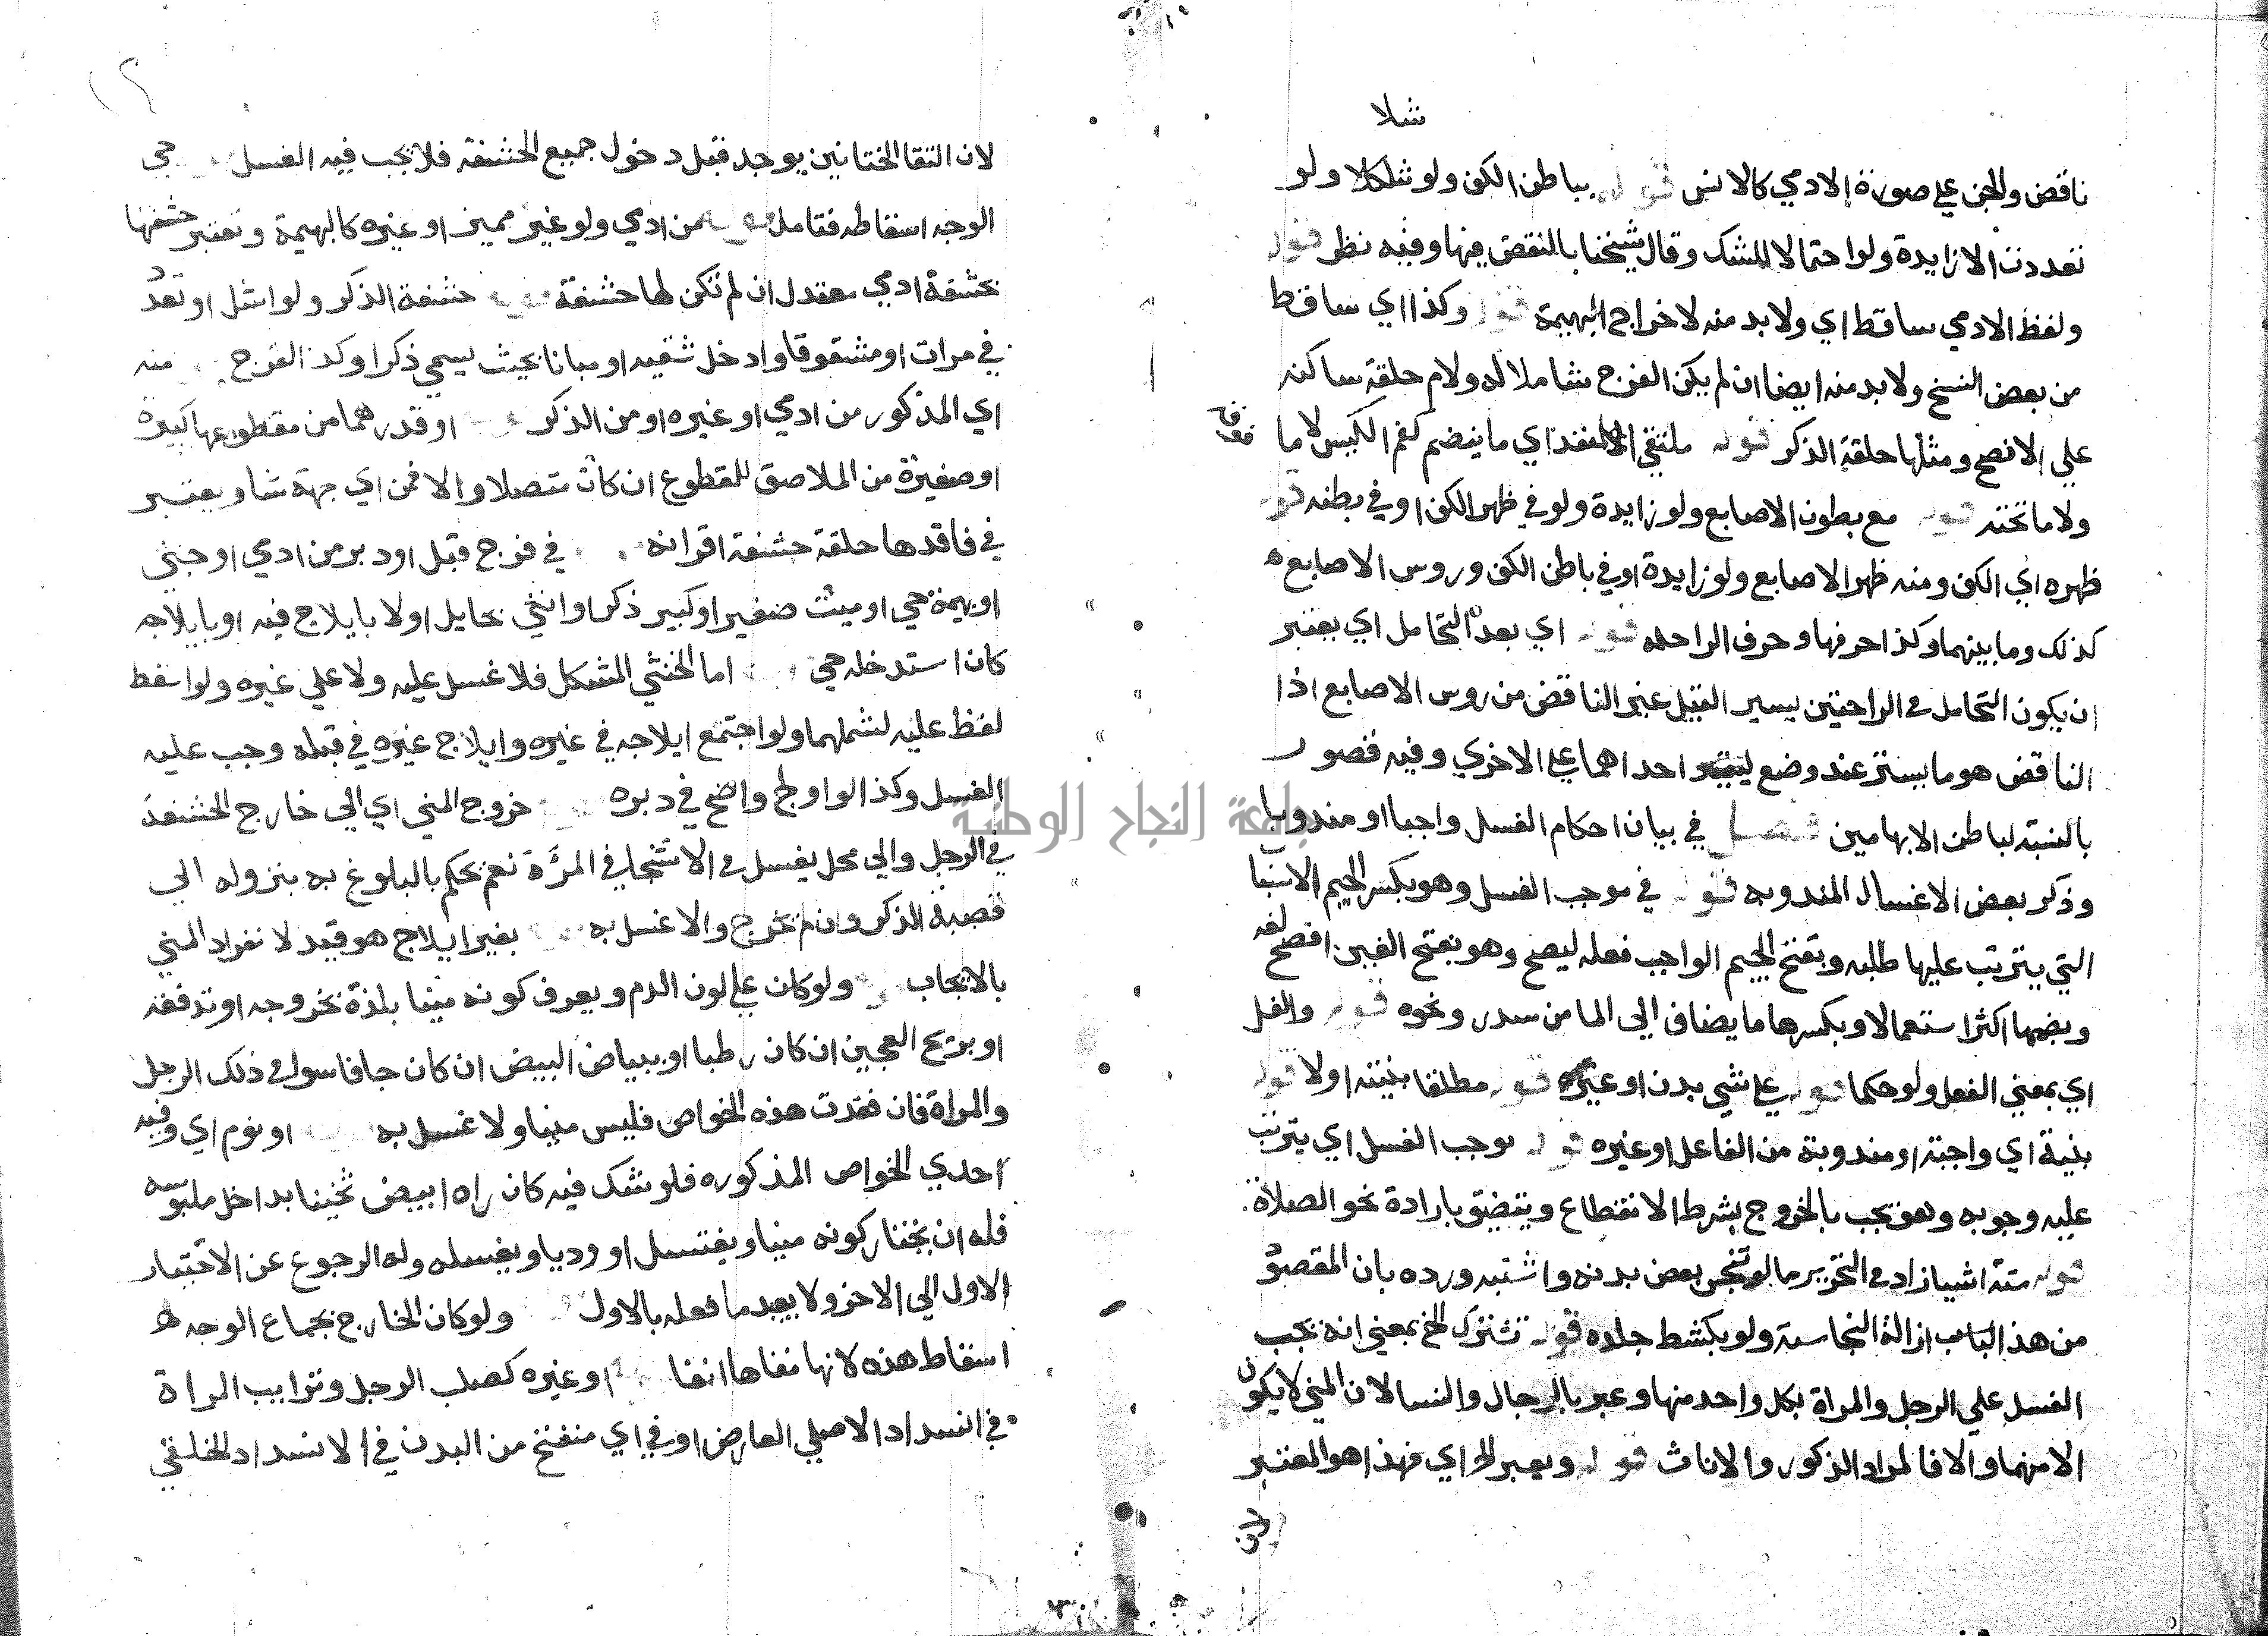 شلا
ناقض والجن علي صورة الادمي كالانس قوله بباطن الكف ولو شلا ولو
تعددت الا زايدة ولو احتمالا للشك وقال شيخنا بالنقض فيها وفيه نظر قوله
ولفظ الادمي ساقط اي ولا بد منه لاخراج البهيمة قوله وكذا اي ساقط
من بعض النسخ ولا بد منه ايضا ان لم يكن الفرج شاملا له ولام حلقة ساكنه
علي الافصح ومثلها حلقة الذكر قوله ملتقي المنفذ اي ما ينضم كفم الكيس لا ما
ولا ما تحته قوله مع بطون الاصابع ولو زايدة ولو في ظهر الكف او في بطنه قوله
ظهره اي الكف ومنه ظهر الاصابع ولو زايدة او في باطن الكف وروس الاصابع
كذلك وما بينهما وكذا حرفها وحرف الراحه قوله اي بعد التحامل اي يعتبر
ان يكون التحامل في الراحتين يسير القيل غير الناقض من روس الاصابع اذا
الناقض هو ما يستتر عند وضع احداهما علي الاخري وفيه قصور
بالنسبة لباطن الابهامين فصل في بيان احكام الغسل واجبا او مندوبا
وذكر بعض الاغسال المندوبه قوله في موجب الغسل وهو بكسر الجيم الاسبا
التي يترتب عليها طلبه وبفتح الجيم الواجب فعله ليصح وهو بفتح الغين افصح لغه
وبضمها اكثر استعمالا وبكسرها ما يضاف الي الما من سدر ونحوه قوله والغسل
اي بمعني الفعل ولو حكما قوله علي شي بدن او غيره قوله مطلقا بنيته اولا قوله
بنية اي واجبة او مندوبة من الفاعل او غيره قوله يوجب الغسل اي يترتب
عليه وجوبه وهو يجب بالخروج بشرط الانقطاع ويتضيق بارادة نحو الصلاة
قوله ستة اشيا زاد في التحرير ما لو تنجس بعض بدنه واشتبه ورده بان المقصود
من هذا الباب ازالة النجاسة ولو بكشط جلده قوله تشترك الخ بمعني انه يجب
الغسل علي الرجل والمراة بكل واحد منها وعبر بالرجال والنسا لان المني لا يكون
الا منهما والا فالمراد الذكور والاناث قوله ويعبر الخ اي فهذا هو المعتبر
لان
١٢
لان التقا الختانين يوجد قبل دخول جميع الحشفة فلا يجب فيه الغسل حي
الوجه اسقاطه فتامل قوله من ادمي ولو غير مميز او غيره كالبهيمة وتعتبر حشفتها
بحشفة ادمي معتدل ان لم تكن لها حشفة قوله حشفة الذكر ولو اشل او تعدد
في مرات او مشقوقا وادخل شقيه او مبانا بحيث يسمي ذكرا وكذا الفرج منه
اي المذكور من ادمي او غيره او من الذكر او قدرهما من مقطوعها كبيرة
او صغيرة من الملاصق للمقطوع ان كان متصلا والا فمن اي جهة شا ويعتبر
في فاقدها حلقة حشفة اقرانه في فرج قبل او دبر من ادمي او جني
او بهيمة حي او ميت صغير او كبير ذكر او انثي بحايل اولا بايلاج فيه او بايلاجه
كان استدخله حي اما الخنثي المشكل فلا غسل عليه ولا علي غيره ولو اسقط
لفظ عليه لشملهما ولو اجتمع ايلاجه في غيره وايلاج غيره في قبله وجب عليه
الغسل وكذا لو اولج واضح في دبره خروج المني اي الي خارج الحشفة
في الرجل والي محل يغسل في الاستنجا في المرأة نعم يحكم بالبلوغ به بنزوله الي
قصبة الذكر وان لم يخرج والا غسل به بغير ايلاج هو قيد لانفراد المني
بالايجاب ولو كان علي لون الدم ويعرف كونه منيا بلذة بخروجه او تدفقه
او بريح العجين ان كان رطبا او ببياض البيض ان كان جافا سوا في ذلك الرجل
والمراة فان فقدت هذه الخواص فليس منيا ولا غسل به او نوم اي وفيه
احدي الخواص المذكوره فلو شك فيه كان راه ابيض ثخينا بداخل ملبوسه
فله ان يختار كونه منيا ويغتسل او وديا ويغسله وله الرجوع عن الاختيار
الاول الي الاخر ولا يعيد ما فعله بالاول ولو كان الخارج بجماع الوجه
اسقاط هذه لانها نفاها انفا او غيره كصلب الرجل وترايب المراة
في انسداد الاصلي العارض او في اي منفتح من البدن في الانسداد الخلقي
جامعة النجاح الوطنية